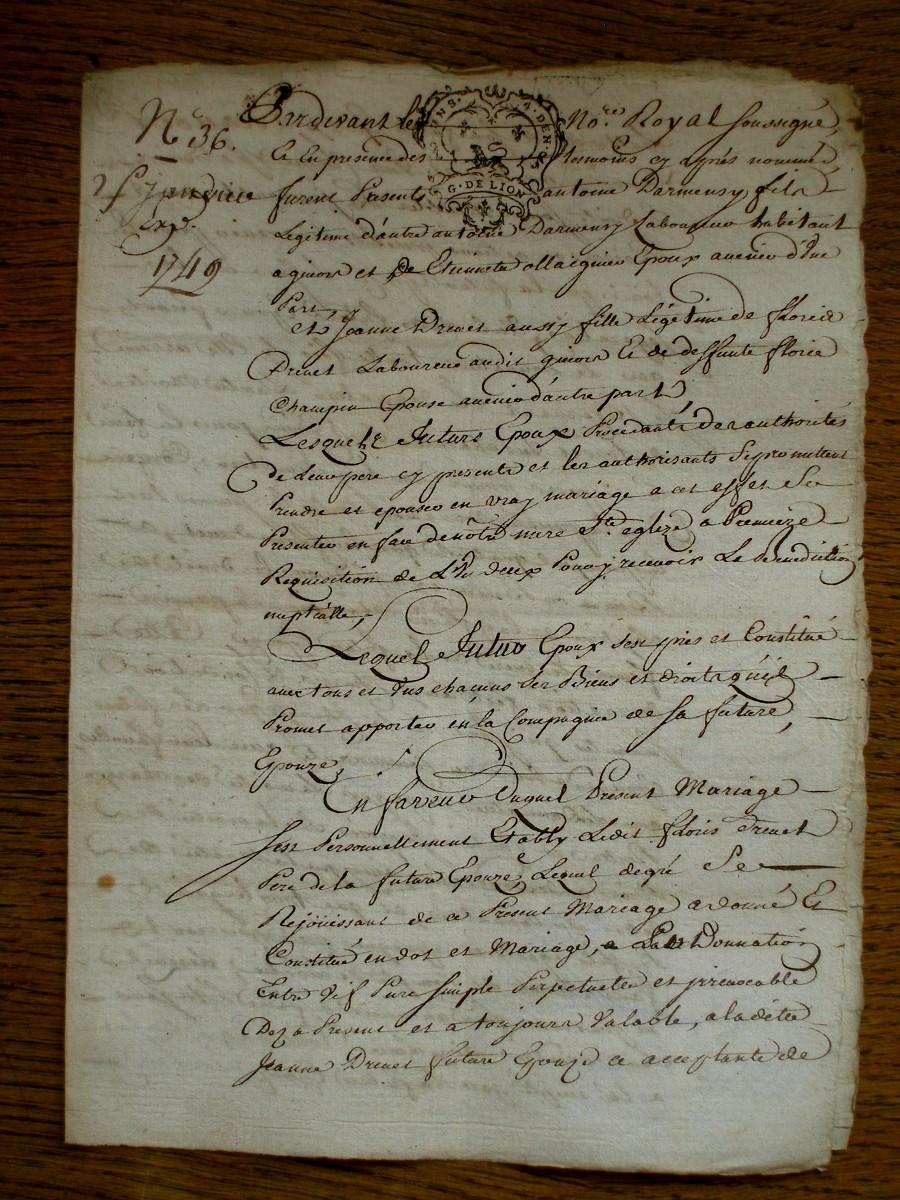 N.° 36.
janvier
1749
G. DE LION
Pardevant le No.re Royal soussigné,
Et En presence des temoins cy après nommé
furent Presents antoine Darmensy fils
Legitime d'autre antoine Darmensy Laboureur habitant
a givors et de Etiennete allaignier Epoux avenir d'Une
Part,
et Jeanne Drevet aussy fille Légétime de florie
Drevet Laboureur audit givors Et de deffunte florie
Champin Epouse avenir d'autre part,
Lesquels futurs Epoux Procedants des authorités
de Leur pere cy presents et les authorisants Se promettent
Prendre et epouser en vray mariage a cet effet Se
Presenter en face de nôtre mere S.te eglize a Premiere
Requisition de L'Un deux Pour y recevoir La Benediction
nuptialle,
Lequel futur Epoux sest pris et Constitué
avec tous et Uns chacuns Ses Biens et droits qu'il
Promet apporter en la Compagnie de sa future,
Epouze,
En faveur duquel Present Mariage
sest Personnellement Etably Ledit floris Drevet
Pere de la future Epouze, Lequel de gré Se
Rejouissant de ce Present Mariage a donné Et
Constitué en dot et Mariage, Donnation
Entre Vif Pure simple Perpetuelle et irrevocable
Dez a Present et a toujours Valable, a ladite
Jeanne Drevet future Epouze ce acceptante de